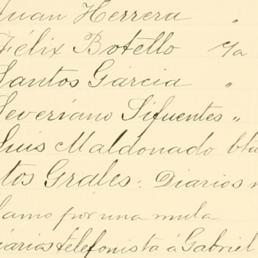 Juan Herrera "
Félix Botello
Santos García "
Severiano Sifuentes "
Luis Maldonado
tos Grales: Diarios
lamo por una mula
iarias telefonista á Gabriel